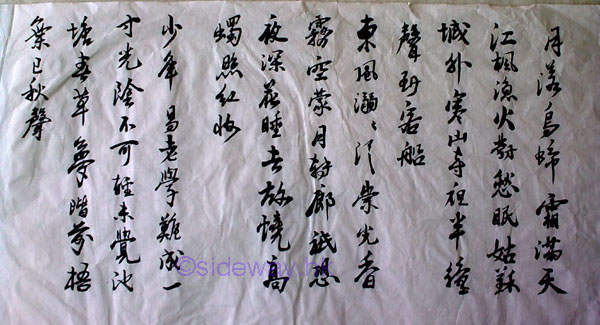 月落烏啼霜滿天
江楓漁火對愁眠姑蘇
城外寒山寺夜半鐘
聲到客船
東風泛崇光香
霧空蒙月轉廊祇恐
夜深花睡去故燒高
燭照紅妝
少年易老學難成一
寸光陰不可輕未覺池
塘春草夢階前梧
葉已秋聲
©sideway.hk